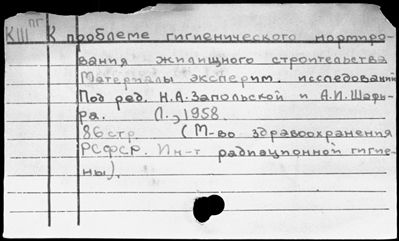 КШ пг К проблеме гигиенического нормиро-
вания жилищного строительства
Материалы эксперим. исследований
Под ред. Н.А.Запольской и А.И.Шафы-
ра. Л., 1958.
86 стр. (М-во здравоохранения
РСФСР. Ин-т радиационной гигие-
ны).